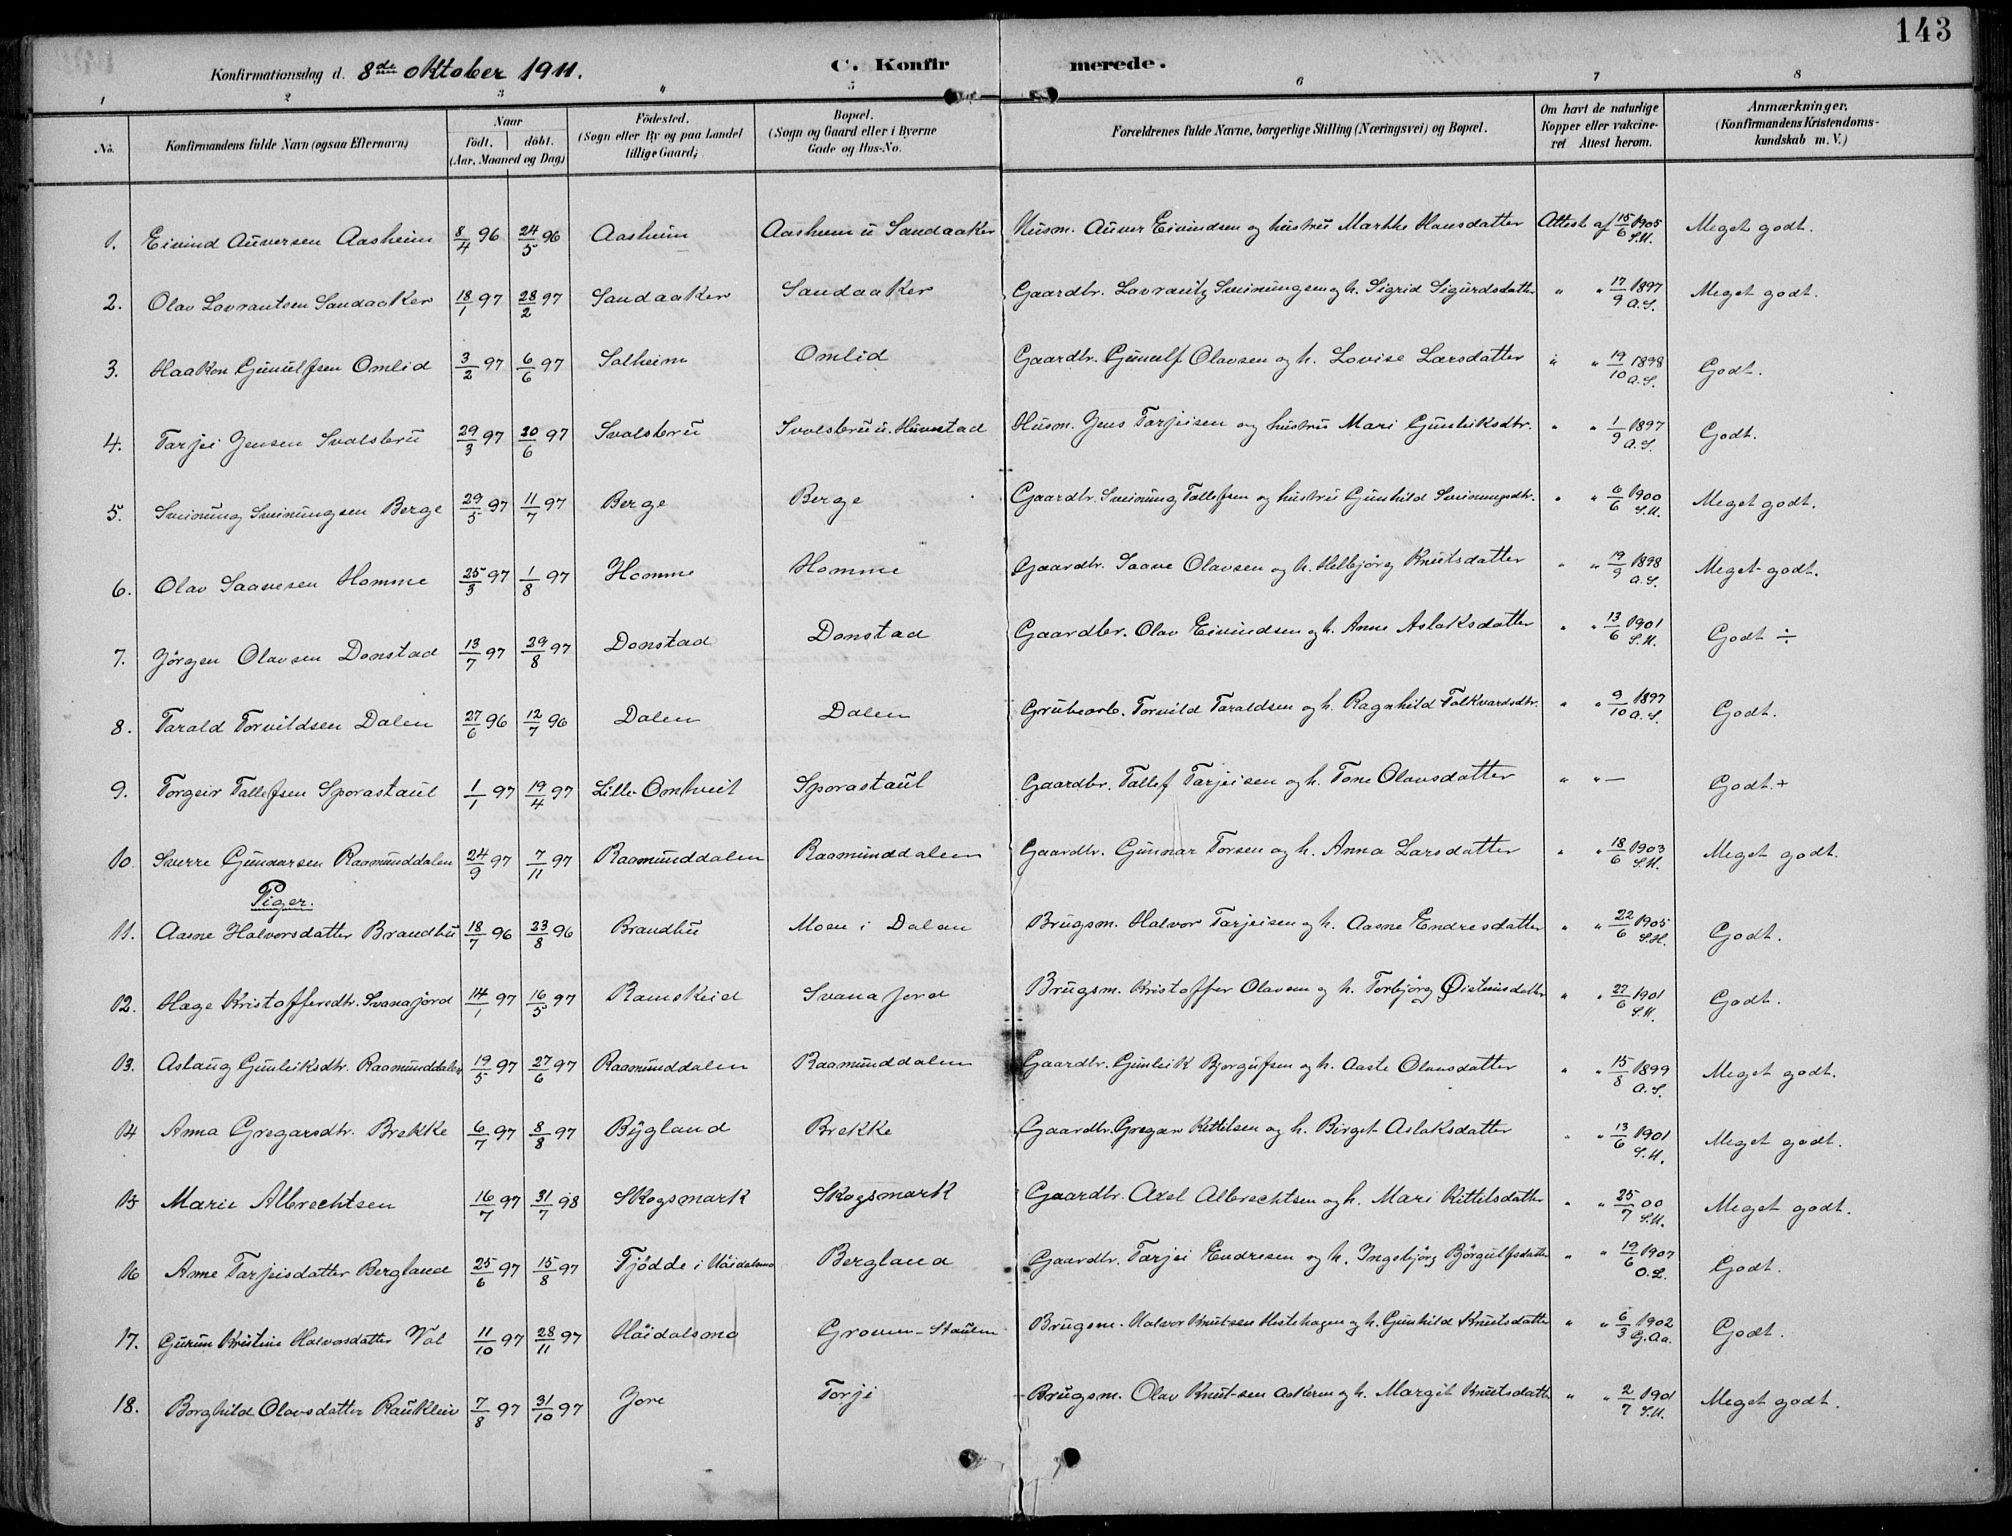 143
Konfirmationsdag d. 8de oktober 1911.
C. Konfirmerede.
1 2 3 4 5 6 7 8
No.
Konfirmandens fulde Navn (ogsaa Efternavn)
Naar
født. døbt.
(Aar, Maaned og Dag)
Fødested.
(Sogn eller By og paa Landet
tillige Gaard)
Bopæl.
(Sogn og Gaard eller i Byerne
Gade og Hus-No.
Forældrenes fulde Navne, borgerlige Stilling (Næringsvei) og Bopæl.
Om havt de naturlige
Kopper eller vakcine-
ret Attest herom.
Anmærkninger.
(Konfirmandens Kristendoms-
kundskab m. V.)
1. Eivind Auversen Aasheim 8/4 96 24/5 96 Aasheim Aasheim u Sandaaker Husm. Auver Eivindsen og hustru Marthe Hansdatter Attest af 15/6 1905 S.H. Meget godt.
2. Olav Lavrantsen Sandaaker 18/1 97 28/2 97 Sandaaker Sandaaker Gaardbr. Lavrants Sveinungsen og h. Sigrid Sigurdsdatter " " 17/9 1897 A.S. Meget godt.
3. Haakon Gunulfsen Omlid 3/2 97 6/6 97 Solheim Omlid Gaardbr. Gunulf Olavsen og h. Lovise Larsdatter " " 19/10 1898 A.S. Godt.
4. Tarjei Jensen Svalsbru 29/3 97 20/6 97 Svalsbru Svalsbru u. Huvestad Husm. Jens Tarjeisen og hustru Mari Gunleiksdtr. " " 1/9 1897 A.S. Godt.
5. Sveinung Sveinungsen Berge 29/5 97 11/7 97 Berge Berge Gaardbr. Sveinung Tallefsen og hustru Gunhild Sveinungsdtr. " " 6/6 1900 S.H. Meget godt.
6. Olav Saavesen Homme 25/3 97 1/8 97 Homme Homme Gaardbr. Saave Olavsen og h. Helbjørg Knutsdatter " " 19/9 1898 A.S. Meget godt.
7. Jørgen Olavsen Donstad 13/7 97 29/8 97 Donstad Donstad Gaardbr. Olav Eivindsen og h. Anne Aslaksdatter " " 13/6 1901 S.H. Godt ÷
8. Tarald Torvildsen Dalen 27/6 96 12/7 96 Dalen Dalen Grubearb. Torvild Taraldsen og h. Ragnhild Folkvardsdtr. " " 9/10 1897 A.S. Godt.
9. Torgeir Tallefsen Sporastaul 1/1 97 19/4 97 Lille-Omtveit Sporastaul Gaardbr. Tallef Tarjeisen og h. Tone Olavsdatter " " — Godt. +
10. Sverre Gunnarsen Raamunddalen 24/9 97 7/11 97 Raamunddalen Raamunddalen Gaardbr. Gunnar Torsen og h. Anna Larsdatter " " 18/6 1903 S.H. Meget godt.
Piger.
11. Aasne Halvorsdatter Brandhu 18/7 96 23/8 96 Brandhu Moen i Dalen Brugsm. Halvor Tarjeisen og h. Aasne Endresdatter " " 22/6 1905 S.H. Godt.
12. Hæge Kristoffersdtr. Svanajord 14/1 97 16/5 97 Ramskeid Svanajord Brugsm. Kristoffer Olavsen og h. Torbjørg Øisteinsdatter " " 27/6 1901 S.H. Godt.
13. Aslaug Gunleiksdtr. Raamunddalen 19/5 97 27/6 97 Raamunddalen Raamunddalen Gaardbr. Gunleik Bjørgufsen og h. Aaste Olavsdatter " " 15/8 1899 A.S. Meget godt.
14 Anna Gregarsdtr. Brekke 6/7 97 8/8 97 Bygland Brekke Gaardbr. Gregar Kittilsen og h. Birget Aslaksdatter " " 13/6 1901 S.H. Meget godt.
15 Marie Albrechtsen 16/7 97 31/7 98 Skogsmark Skogsmark Gaardbr. Axel Albrechtsen og h. Mari Kittilsdatter " " 25/7 00 S.H. Meget godt.
16 Anne Tarjeisdatter Bergland 25/6 97 15/8 97 Tjødde i Høidalsmo Bergland Gaardbr. Tarjei Endresen og h. Ingebjørg Bjørgulfsdatter " " 19/6 1907 O.L. Godt.
17. Gurun Kristine Halvorsdatter Val 11/10 97 28/11 97 Høidalsmo Groven-Staulen Brugsm. Halvor Knutsen Hestehagen og h. Gunhild Knutsdatter " " 6/3 1902 G.Aa. Godt.
18. Borghild Olavsdatter Raukleiv 7/8 97 31/10 97 Jore Torji Brugsm. Olav Knutsen Aakeren og h. Margit Knutsdatter " " 2/7 1901 S.H. Meget godt.